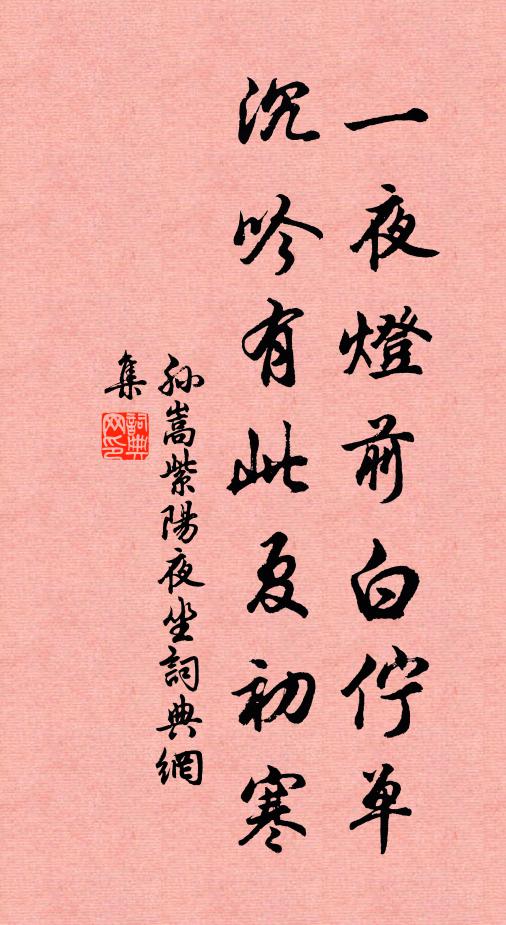 一夜燈前白佇单
沉吟有此夏初寒
孫嵩紫陽夜坐詞典網
集
詞典
网印